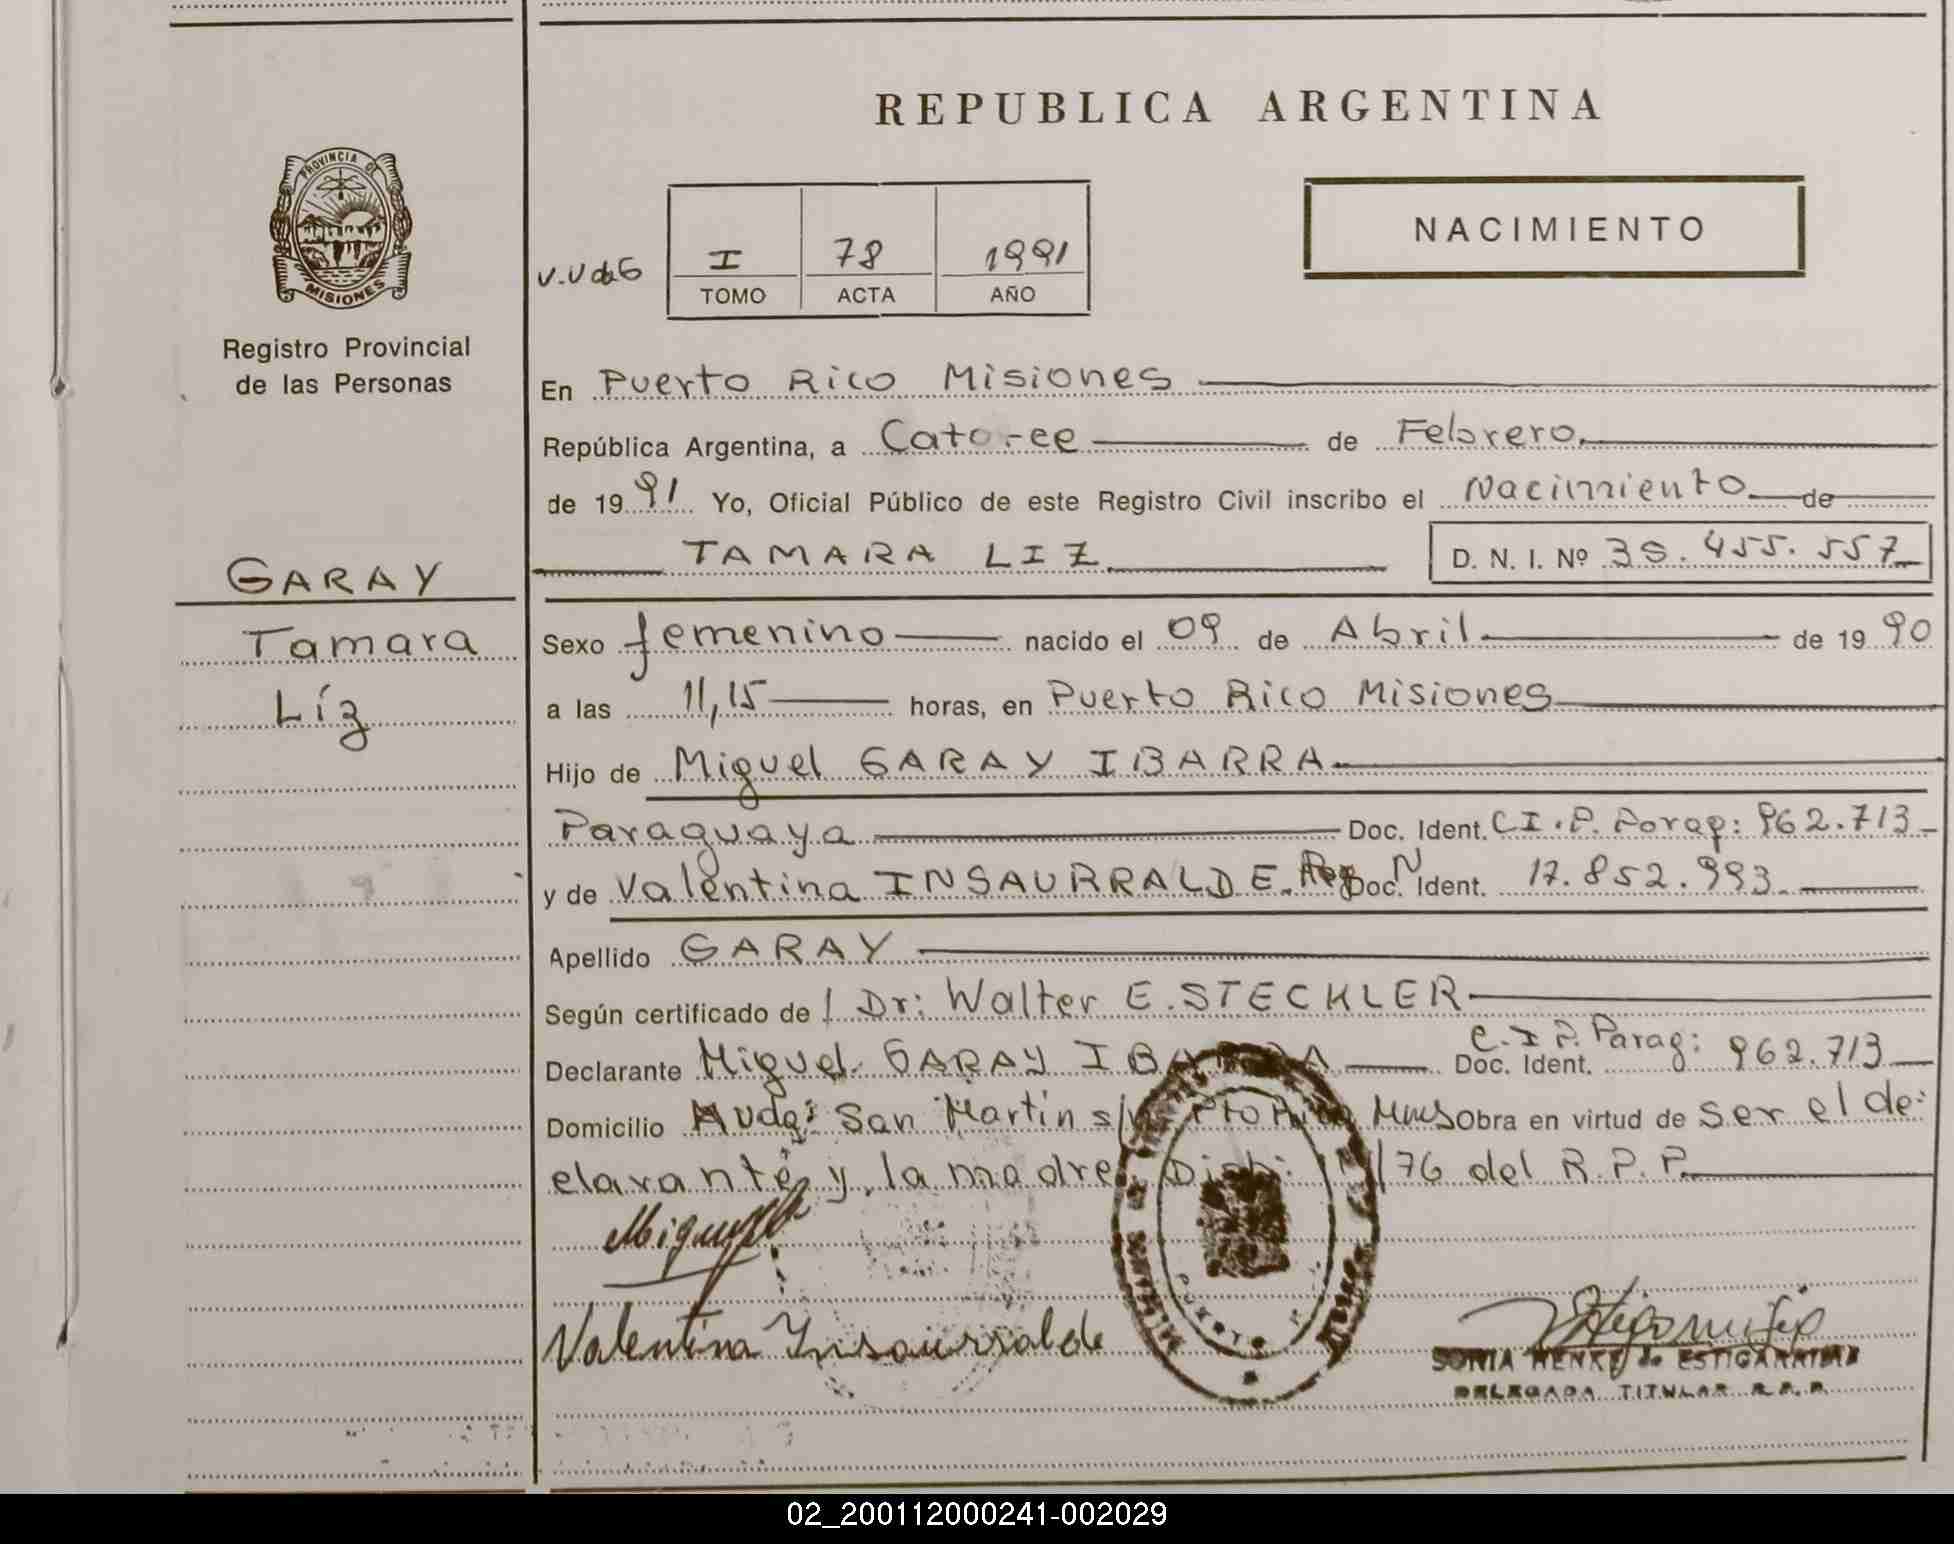 REPUBLICA ARGENTINA
PROVINCIA DE
MISIONES
Registro Provincial
de las Personas
NACIMIENTO
I 78 1991
TOMO ACTA AÑO
En Puerto Rico Misiones
República Argentina, a Catorce de Febrero.
de 1991 Yo, Oficial Público de este Registro Civil inscribo el Nacimiento de
TAMARA LIZ. D. N. I. Nº 35.455.557
GARAY
Tamara
Líz
Sexo femenino nacido el 09 de Abril de 1990
a las 11,15 horas, en Puerto Rico Misiones
Hijo de Miguel GARAY IBARRA.
Paraguaya Doc. Ident. C I.P. Parag: 962.713
y de Valentina INSAURRALDE. Doc. Ident. 17.852.993
Apellido GARAY
Según certificado de Dr: Walter E. STECKLER
Declarante Miguel GARAY IBARRA Doc. Ident. C.I P. Parag: 962.713
Domicilio Avda: San Martín s/n Pto Rico Mnes Obra en virtud de ser el de:
clarante y la madre /76 del R.P.P.
Valentina Insaurralde
SONIA HENKE de ESTIGARRIBIA
DELEGADA TITULAR R.P.P.
02_200112000241-002029